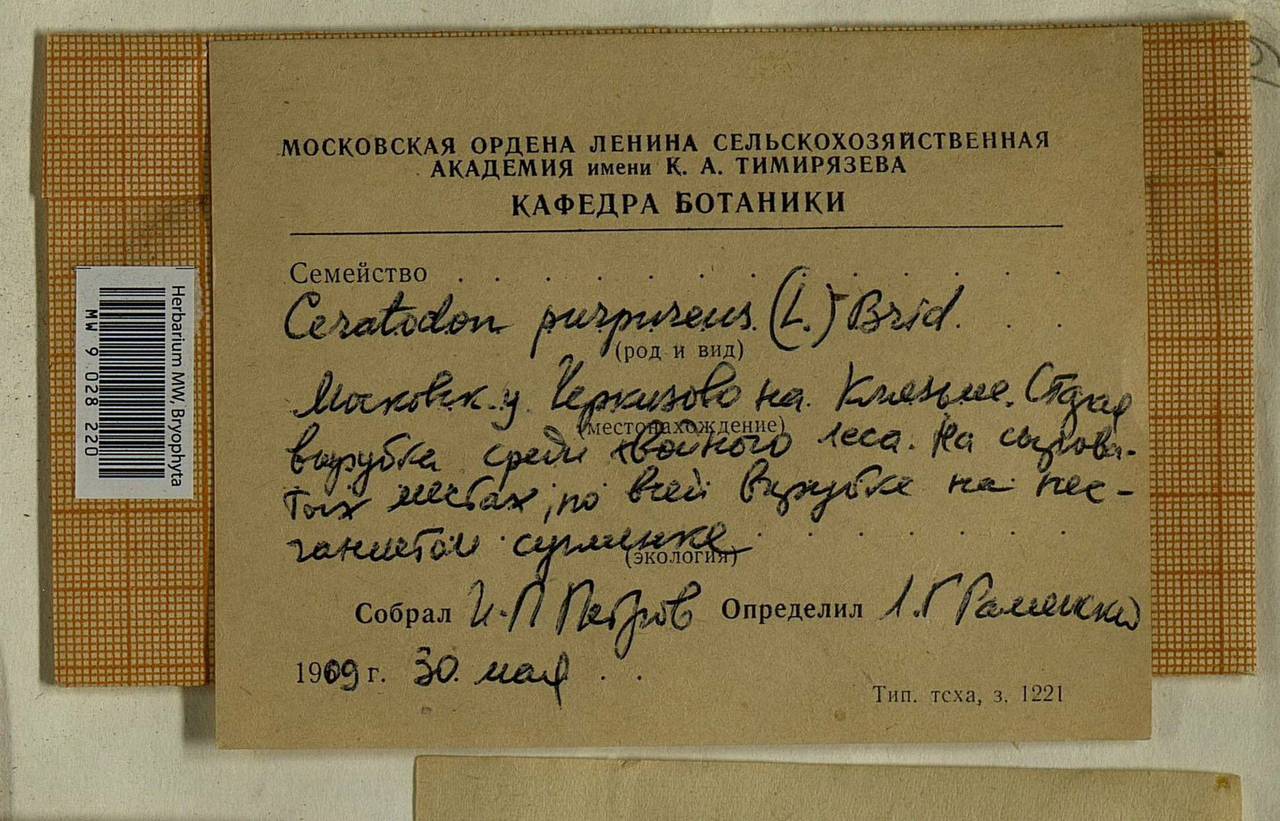 МОСКОВСКАЯ ОРДЕНА ЛЕНИНА СЕЛЬСКОХОЗЯЙСТВЕННАЯ
АКАДЕМИЯ имени К. А. ТИМИРЯЗЕВА
КАФЕДРА БОТАНИКИ
Семейство
Ceratodon purpureus (L.) Brid.
(род и вид)
Московск. у. Черкизово на Клязьме. Старая
(местонахождение)
вырубка среди хвойного леса. На сырова-
тых местах, по всей вырубке на пес-
чанистом суглинке
(экология)
Собрал И. П Петров Определил Л. Г Раменский
1909 г. 30. мая
Тип. тсха, з. 1221
Herbarium MW, Bryophyta
MW 9 028 220